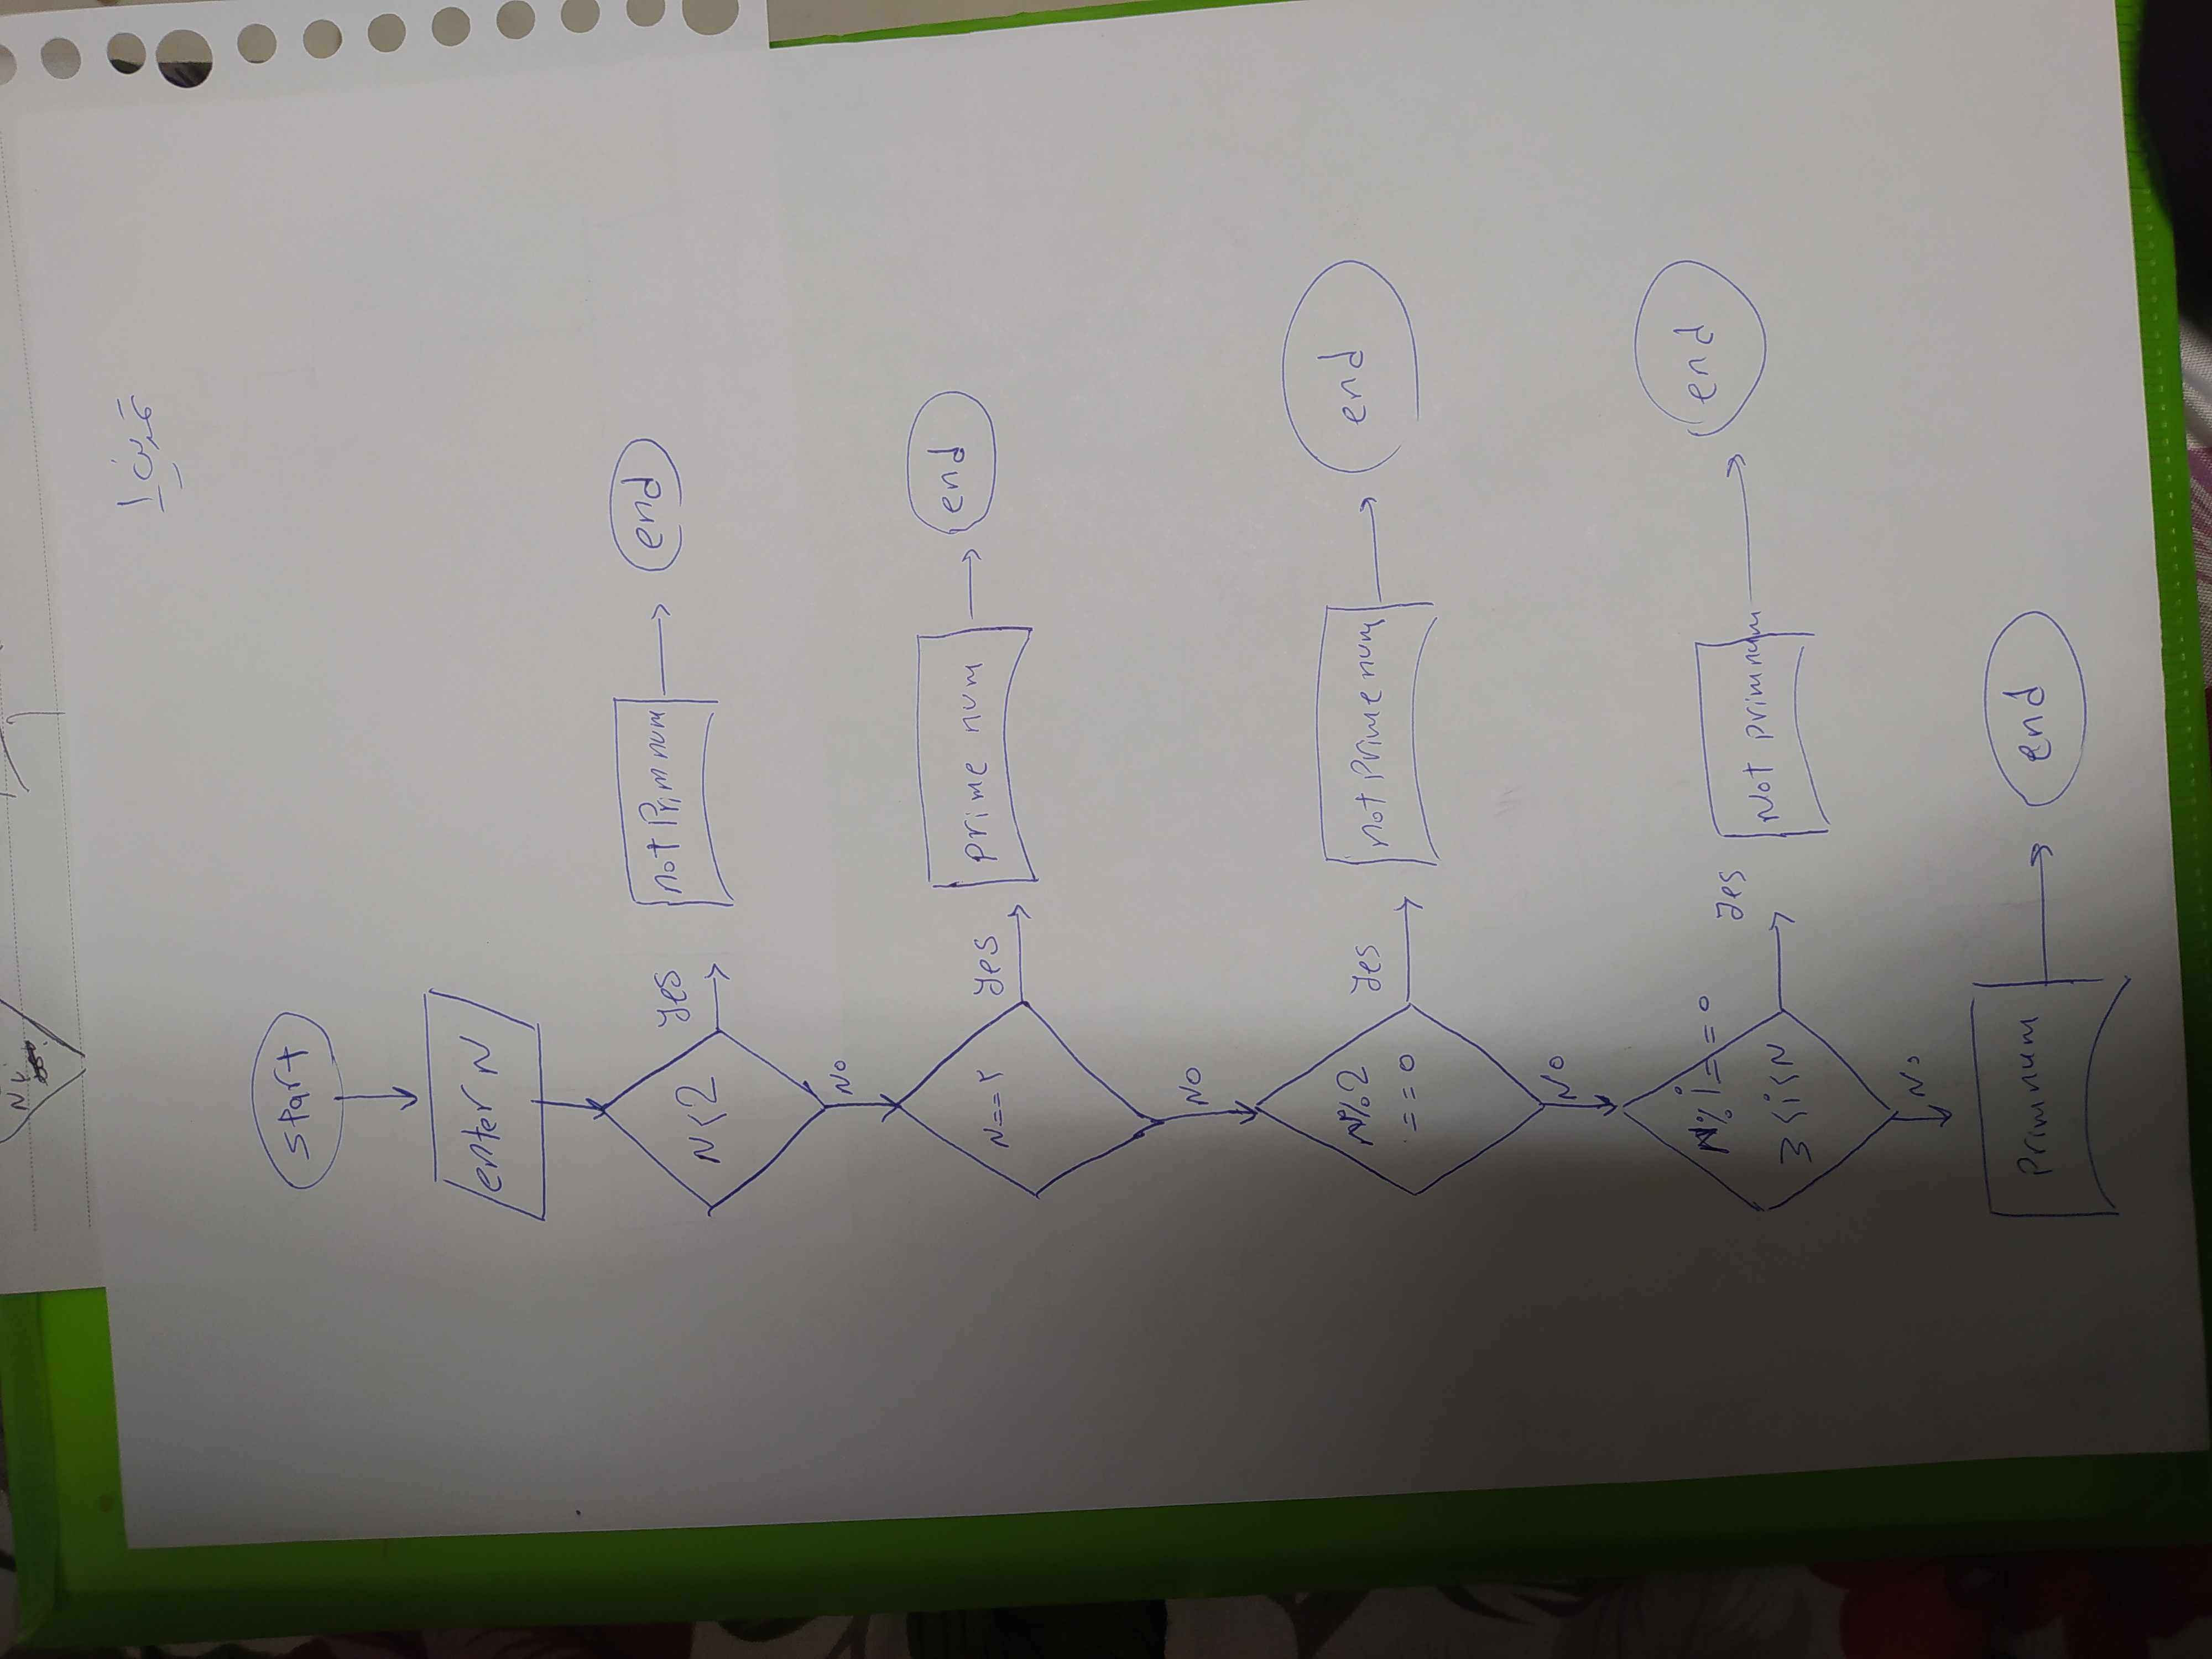 تمرین ۱
start
enter N
N<2
yes
not Prim num
end
No
N==۲
yes
prime num
end
NO
N%2
==0
yes
not Prime num
end
No
N%i==0
3<i<N
yes
Not primnum
end
No
Primnum
end